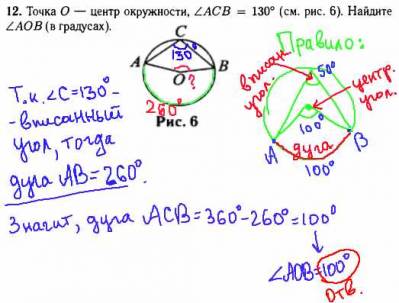 12. Точка O — центр окружности, ∠ACB = 130° (см. рис. 6). Найдите
∠AOB (в градусах).
C
130°
A
B
O
?
260°
Рис. 6
Правило:
вписан.
угол.
50°
центр.
угол.
100°
A
B
дуга
100°
Т.к. ∠C=130° -
- вписанный
угол, тогда
дуга AB = 260°.
Значит, дуга ACB = 360° - 260° = 100°
∠AOB = 100°
Отв.